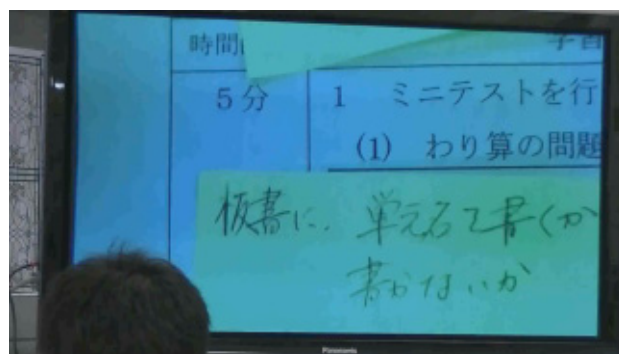 時間
学習
5分
1 ミニテストを行
(1) わり算の問題
板書に、単元名を書くか
書かないか
Panasonic